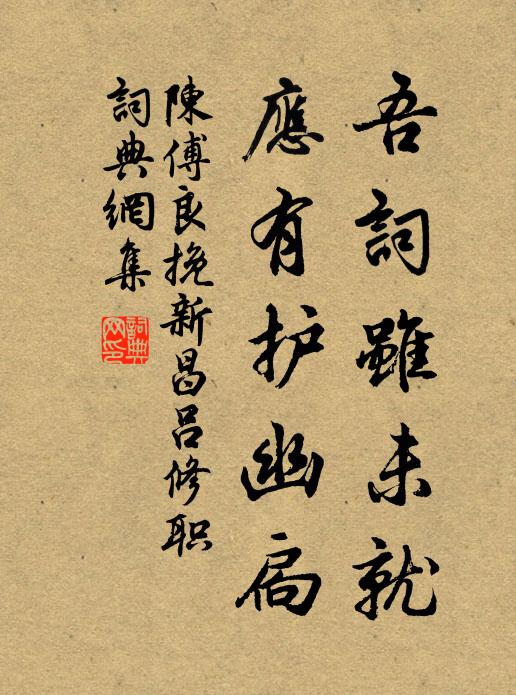 吾詞雖未就
應有护幽扃
陳傅良挽新昌呂修职
詞典網集
詞典網印